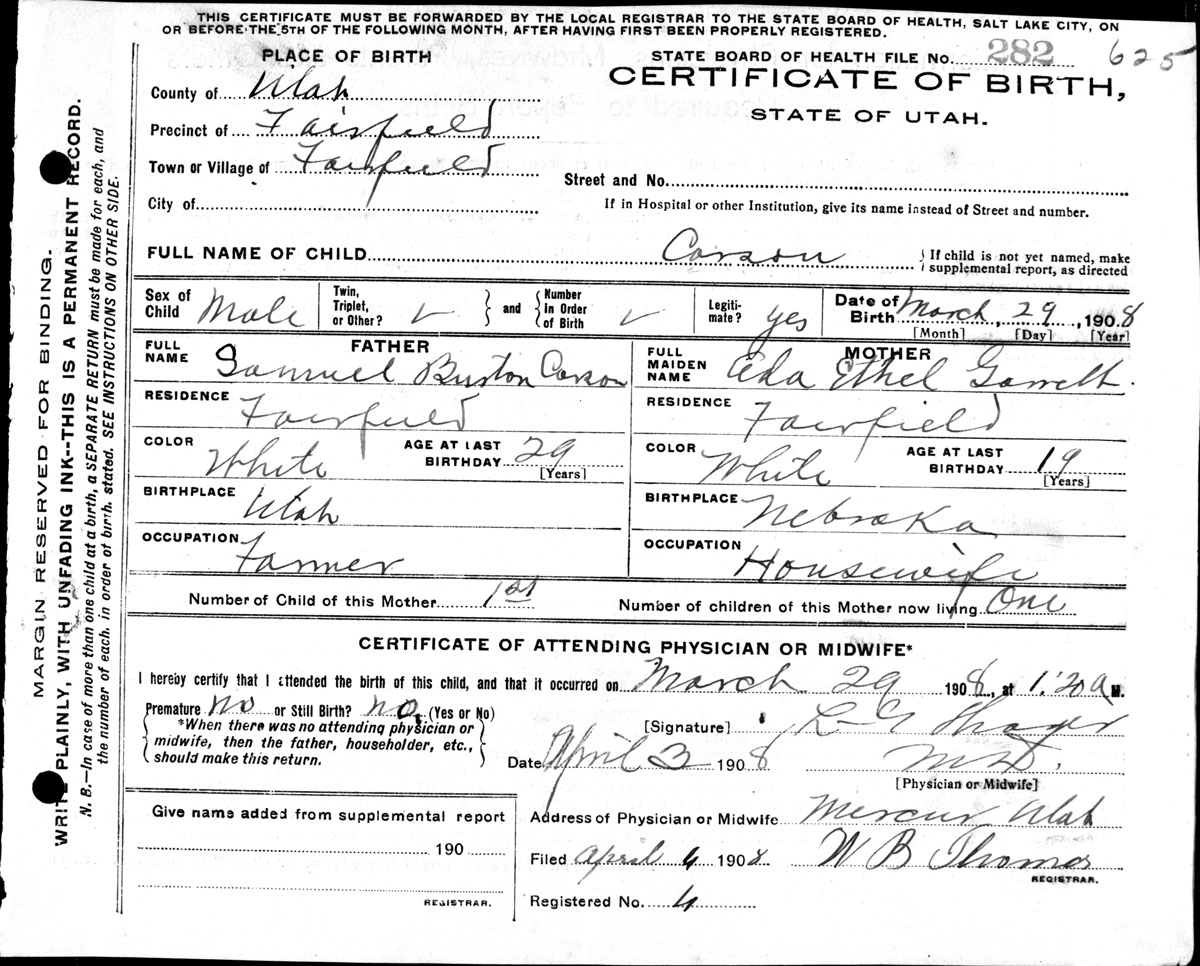 THIS CERTIFICATE MUST BE FORWARDED BY THE LOCAL REGISTRAR TO THE STATE BOARD OF HEALTH, SALT LAKE CITY, ON
OR BEFORE THE 5TH OF THE FOLLOWING MONTH, AFTER HAVING FIRST BEEN PROPERLY REGISTERED.
PLACE OF BIRTH
STATE BOARD OF HEALTH FILE No. 282 625
CERTIFICATE OF BIRTH,
STATE OF UTAH.
County of Utah
Precinct of Fairfield
Town or Village of Fairfield
Street and No.
City of
If in Hospital or other Institution, give its name instead of Street and number.
FULL NAME OF CHILD Carson { If child is not yet named, make
supplemental report, as directed
Sex of Child Male Twin, Triplet, or Other? and Number In Order of Birth Legiti- mate? yes Date of Birth March, 29, 1908
[Month] [Day] [Year]
FATHER
FULL NAME Samuel Buston Carson
RESIDENCE Fairfield
COLOR White AGE AT LAST BIRTHDAY 29
[Years]
BIRTHPLACE Utah
OCCUPATION Farmer
MOTHER
FULL MAIDEN NAME Ada Ethel Garrett.
RESIDENCE Fairfield
COLOR White AGE AT LAST BIRTHDAY 19
[Years]
BIRTHPLACE Nebraka
OCCUPATION Housewife
Number of Child of this Mother 1st Number of children of this Mother now living One
CERTIFICATE OF ATTENDING PHYSICIAN OR MIDWIFE*
I hereby certify that I attended the birth of this child, and that it occurred on March 29 1908, at 1:20 A M.
Premature no or Still Birth? no. (Yes or No)
*When there was no attending physician or
midwife, then the father, householder, etc.,
should make this return.
[Signature]
Date April 3 1908 M.D.
[Physician or Midwife]
Address of Physician or Midwife Mercur Utah
Filed April 4 1908 W B Thomas
REGISTRAR.
Registered No. 4
Give name added from supplemental report
190
REGISTRAR.
MARGIN RESERVED FOR BINDING.
WRITE PLAINLY, WITH UNFADING INK--THIS IS A PERMANENT RECORD.
N. B.—In case of more than one child at a birth, a SEPARATE RETURN must be made for each, and
the number of each, in order of birth, stated. SEE INSTRUCTIONS ON OTHER SIDE.